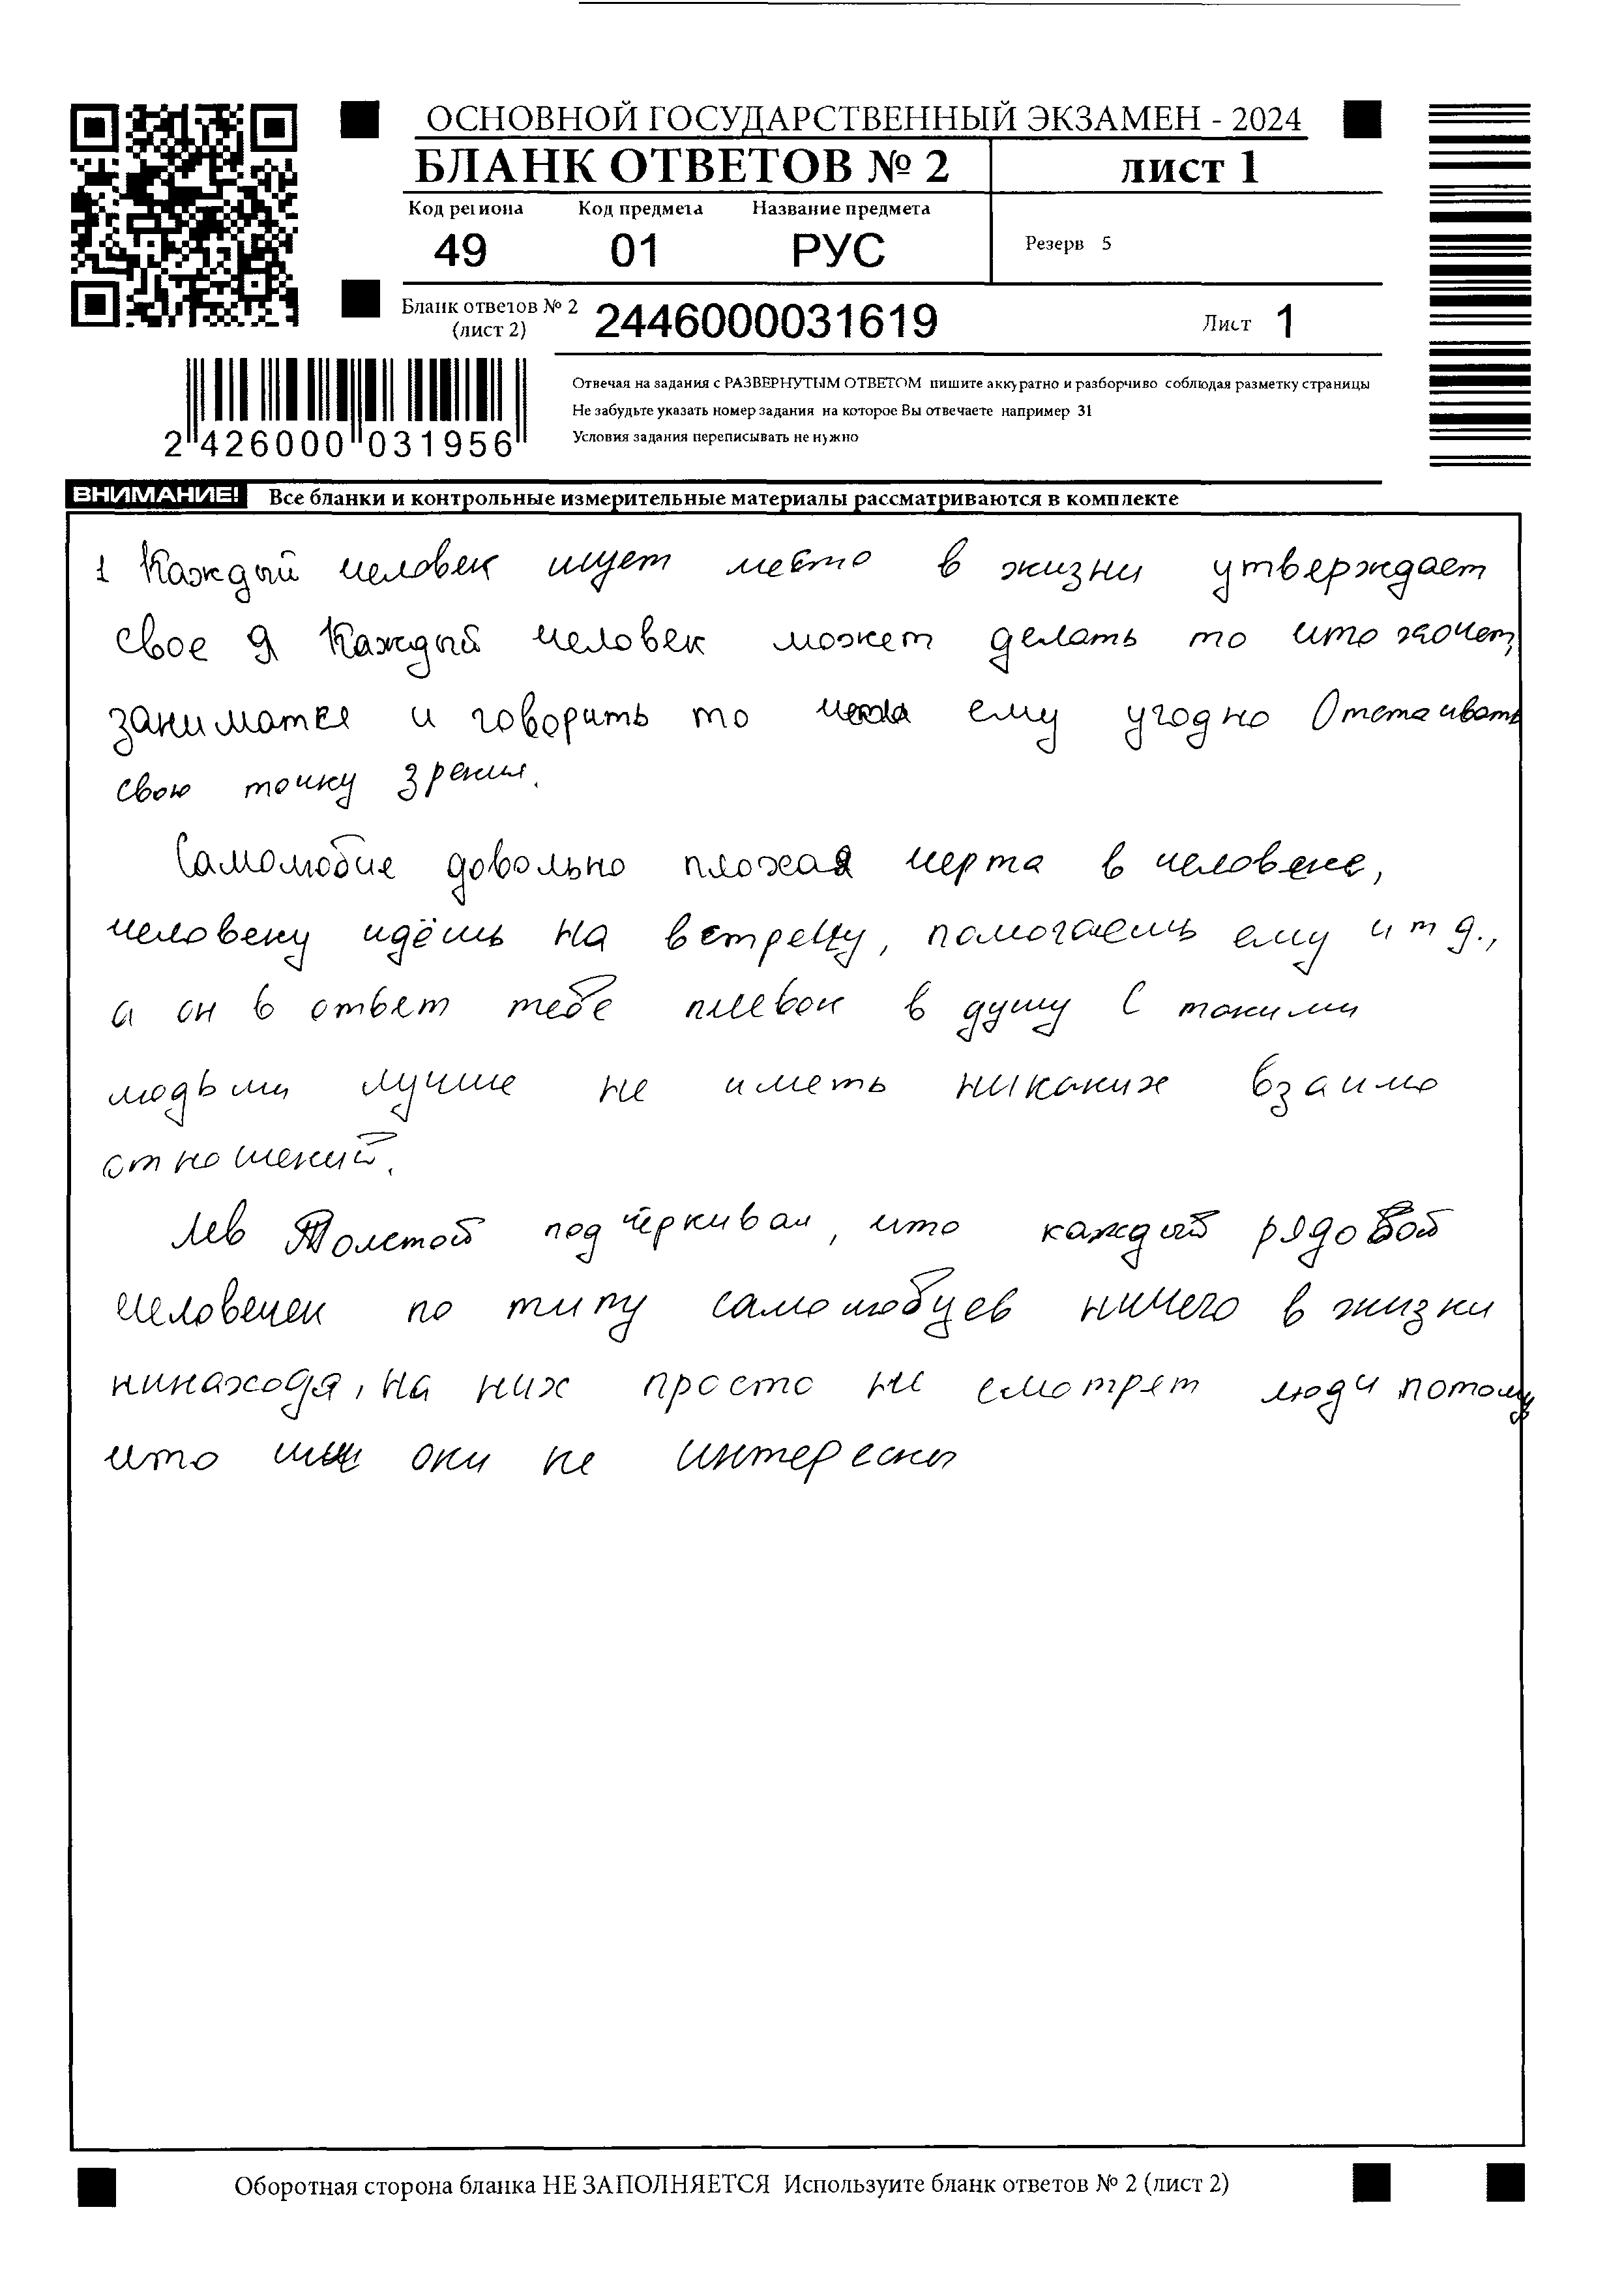 ОСНОВНОЙ ГОСУДАРСТВЕННЫЙ ЭКЗАМЕН - 2024
БЛАНК ОТВЕТОВ № 2
лист 1
Код региона
Код предмета
Название предмета
49
01
РУС
Резерв 5
Бланк ответов № 2
(лист 2)
2446000031619
Лист 1
2 426000 031956
Отвечая на задания с РАЗВЕРНУТЫМ ОТВЕТОМ пишите аккуратно и разборчиво соблюдая разметку страницы
Не забудьте указать номер задания на которое Вы отвечаете например 31
Условия задания переписывать не нужно
ВНИМАНИЕ! Все бланки и контрольные измерительные материалы рассматриваются в комплекте
1 Каждый человек ищет место в жизни утверждает
свое Я Каждый человек может делать то что хочет,
заниматся и говорить то ему угодно Отстаивать
свою точку зрения.
Самолюбие довольно плохая черта в человеке,
человеку идёшь на встречу, помогаешь ему и т д.,
а он в ответ тебе плевок в душу С такими
людьми лучше не иметь никаких взаимо
отношений.
Лев Толстой подчёркивал, что каждый рядовой
человечек по типу самолюбцев ничего в жизни
нинаходя, на них просто не смотрят люди потому
что они не интересны
Оборотная сторона бланка НЕ ЗАПОЛНЯЕТСЯ Используите бланк ответов № 2 (лист 2)